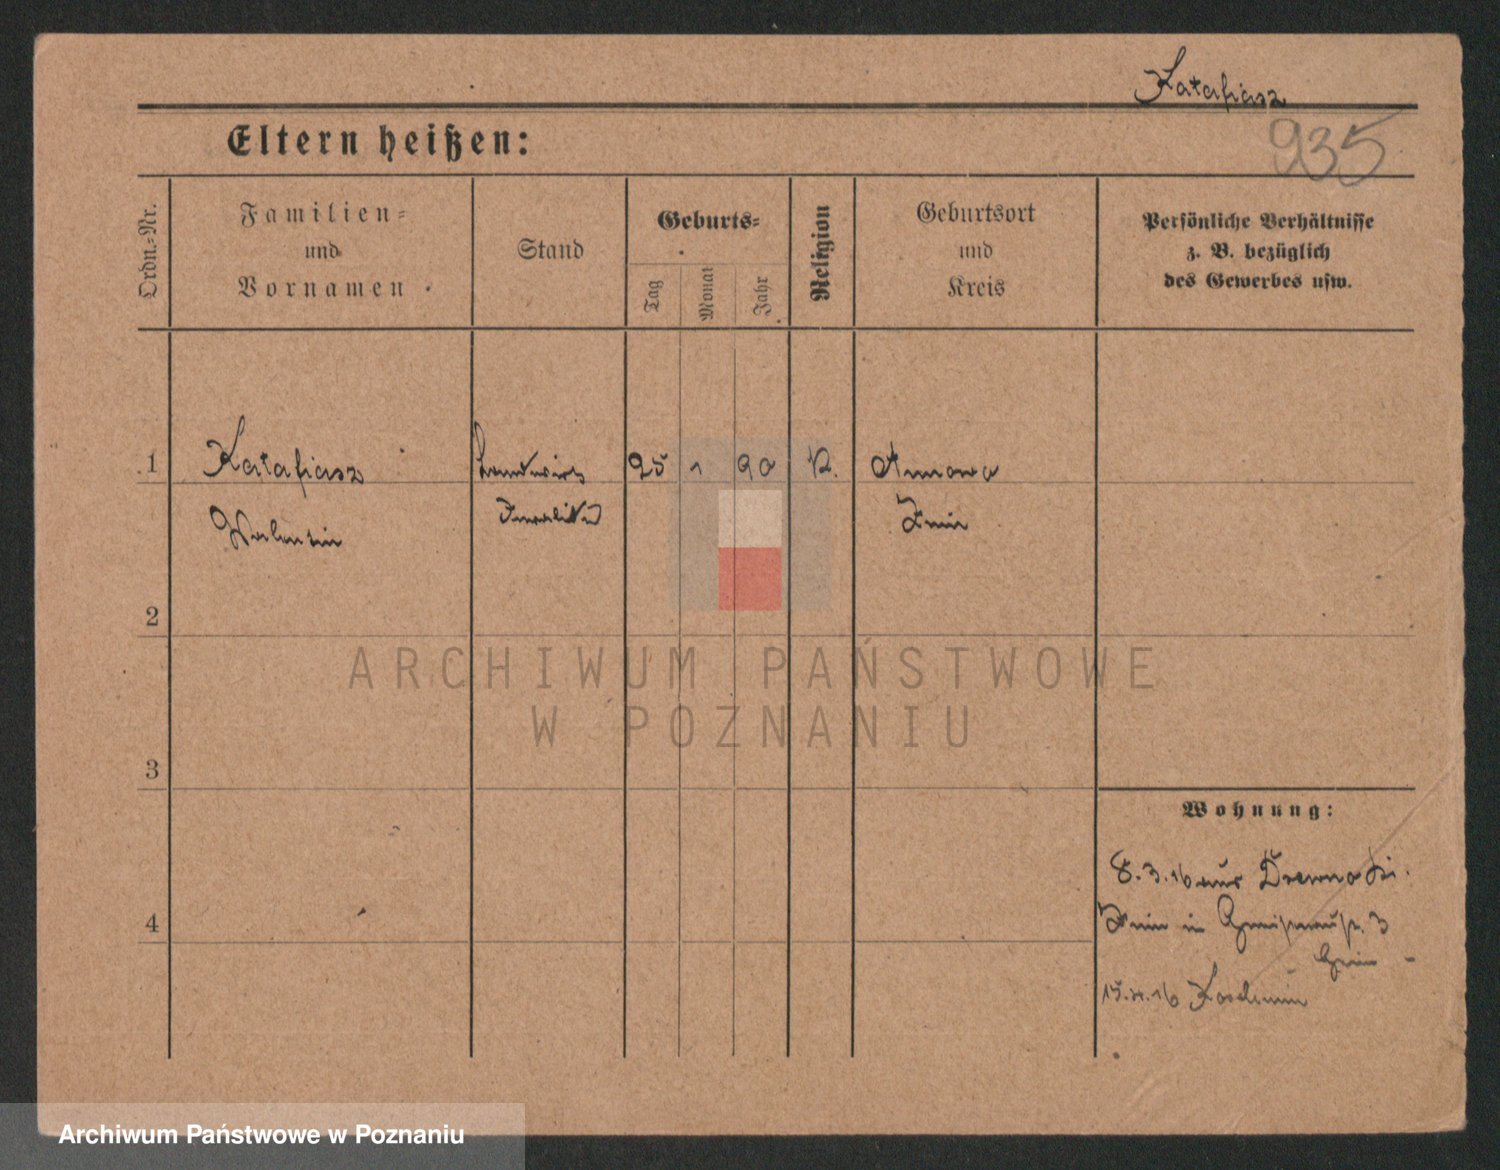 Katafiasz
935
Eltern heißen:
Ordn.-Nr.
Familien-
und
Vornamen
Stand
Geburts-
Tag
Monat
Jahr
Religion
Geburtsort
und
Kreis
Persönliche Verhältnisse
z. B. bezüglich
des Gewerbes usw.
1 Katafiasz Landwirt 25 1 90 K. Annowo
Valentin Invalide Znin
2
ARCHIWUM PAŃSTWOWE
W POZNANIU
3
Wohnung:
8.3.16 aus
Znin in Gneisenaustr. 3
4
15.4.16
Archiwum Państwowe w Poznaniu